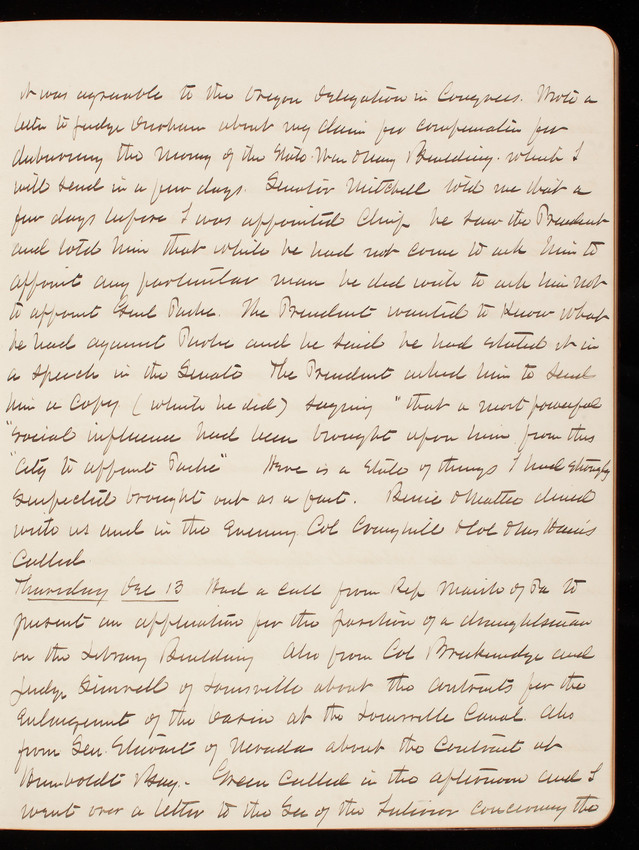 it was agreeable to the Oregon delegation in Congress. Wrote a
letter to Judge Durham about my claim for compensation for
disbursing the money of the State War & Navy Building. which I
will send in a few days. Senator Mitchell told me that a
few days before I was appointed Chief he saw the President
and told him that while he had not come to ask him to
appoint any particular man he did wish to ask him not
to appoint Genl Parke. The President wanted to know what
he had against Parke and he said he had stated it in
a speech in the Senate The President asked him to send
him a copy (which he did) saying "that a most powerful
"social influence had been brought upon him from this
"City to appoint Parke" Here is a state of things I had strongly
suspected brought out as a fact. Bessie & Mattie dined
with us and in the Evening Col & Col & Mrs Harris
Called
Thursday Dec 13 Had a call from Rep of Pa to
present an application for the position of a draughtsman
on the Library Building Also from Col Breckinridge and
Judge of Louisville about the contracts for the
Enlargement of the basin at the Louisville Canal. Also
from Sen. Stewart of Nevada about the Contract at
Humboldt Bay. - Green called in the afternoon and I
went over a letter to the Sec of the Interior concerning the